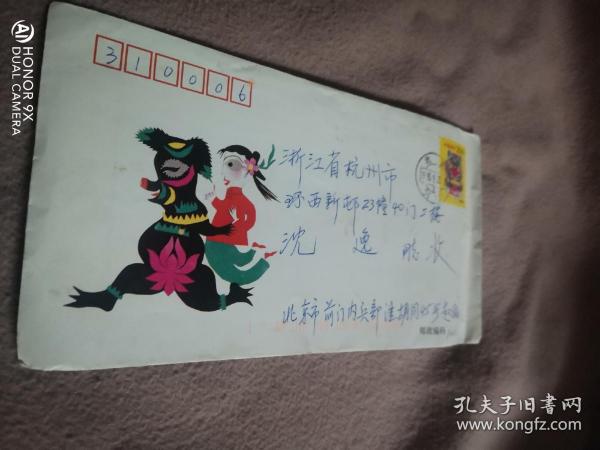 HONOR 9X
DUAL CAMERA
310006
浙江省杭州市
环西新邨23幢40门二楼
沈 逸 同志 收
北京市前门内兵部洼胡同45号
邮政编码
孔夫子旧书网
www.kongfz.com